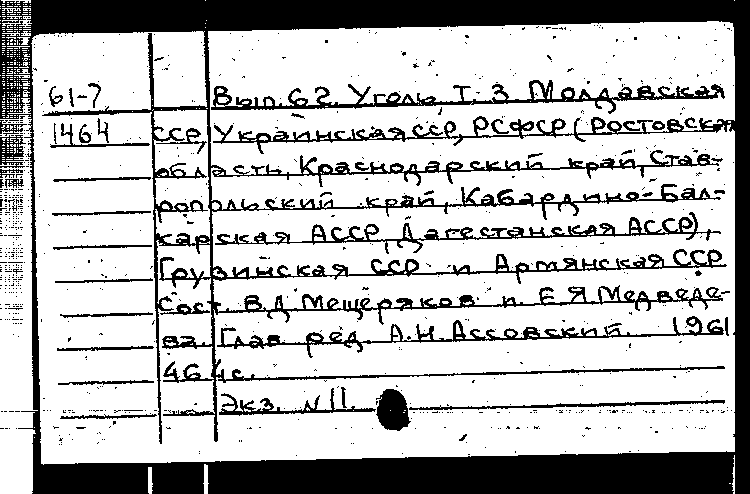 61-7 Вып. 62. Уголь, Т. 3. Молдавская
1464 ССР, Украинская ССР, РСФСР (Ростовская
область, Краснодарский край, Став-
ропольский край, Кабардино-Бал-
карская АССР, Дагестанская АССР),
Грузинская ССР и Армянская ССР
Сост. В.Д. Мещеряков и Е.Я. Медведе-
ва. Глав. ред. А.Н. Ассовский. 1961
464 с.
Экз. N 11.